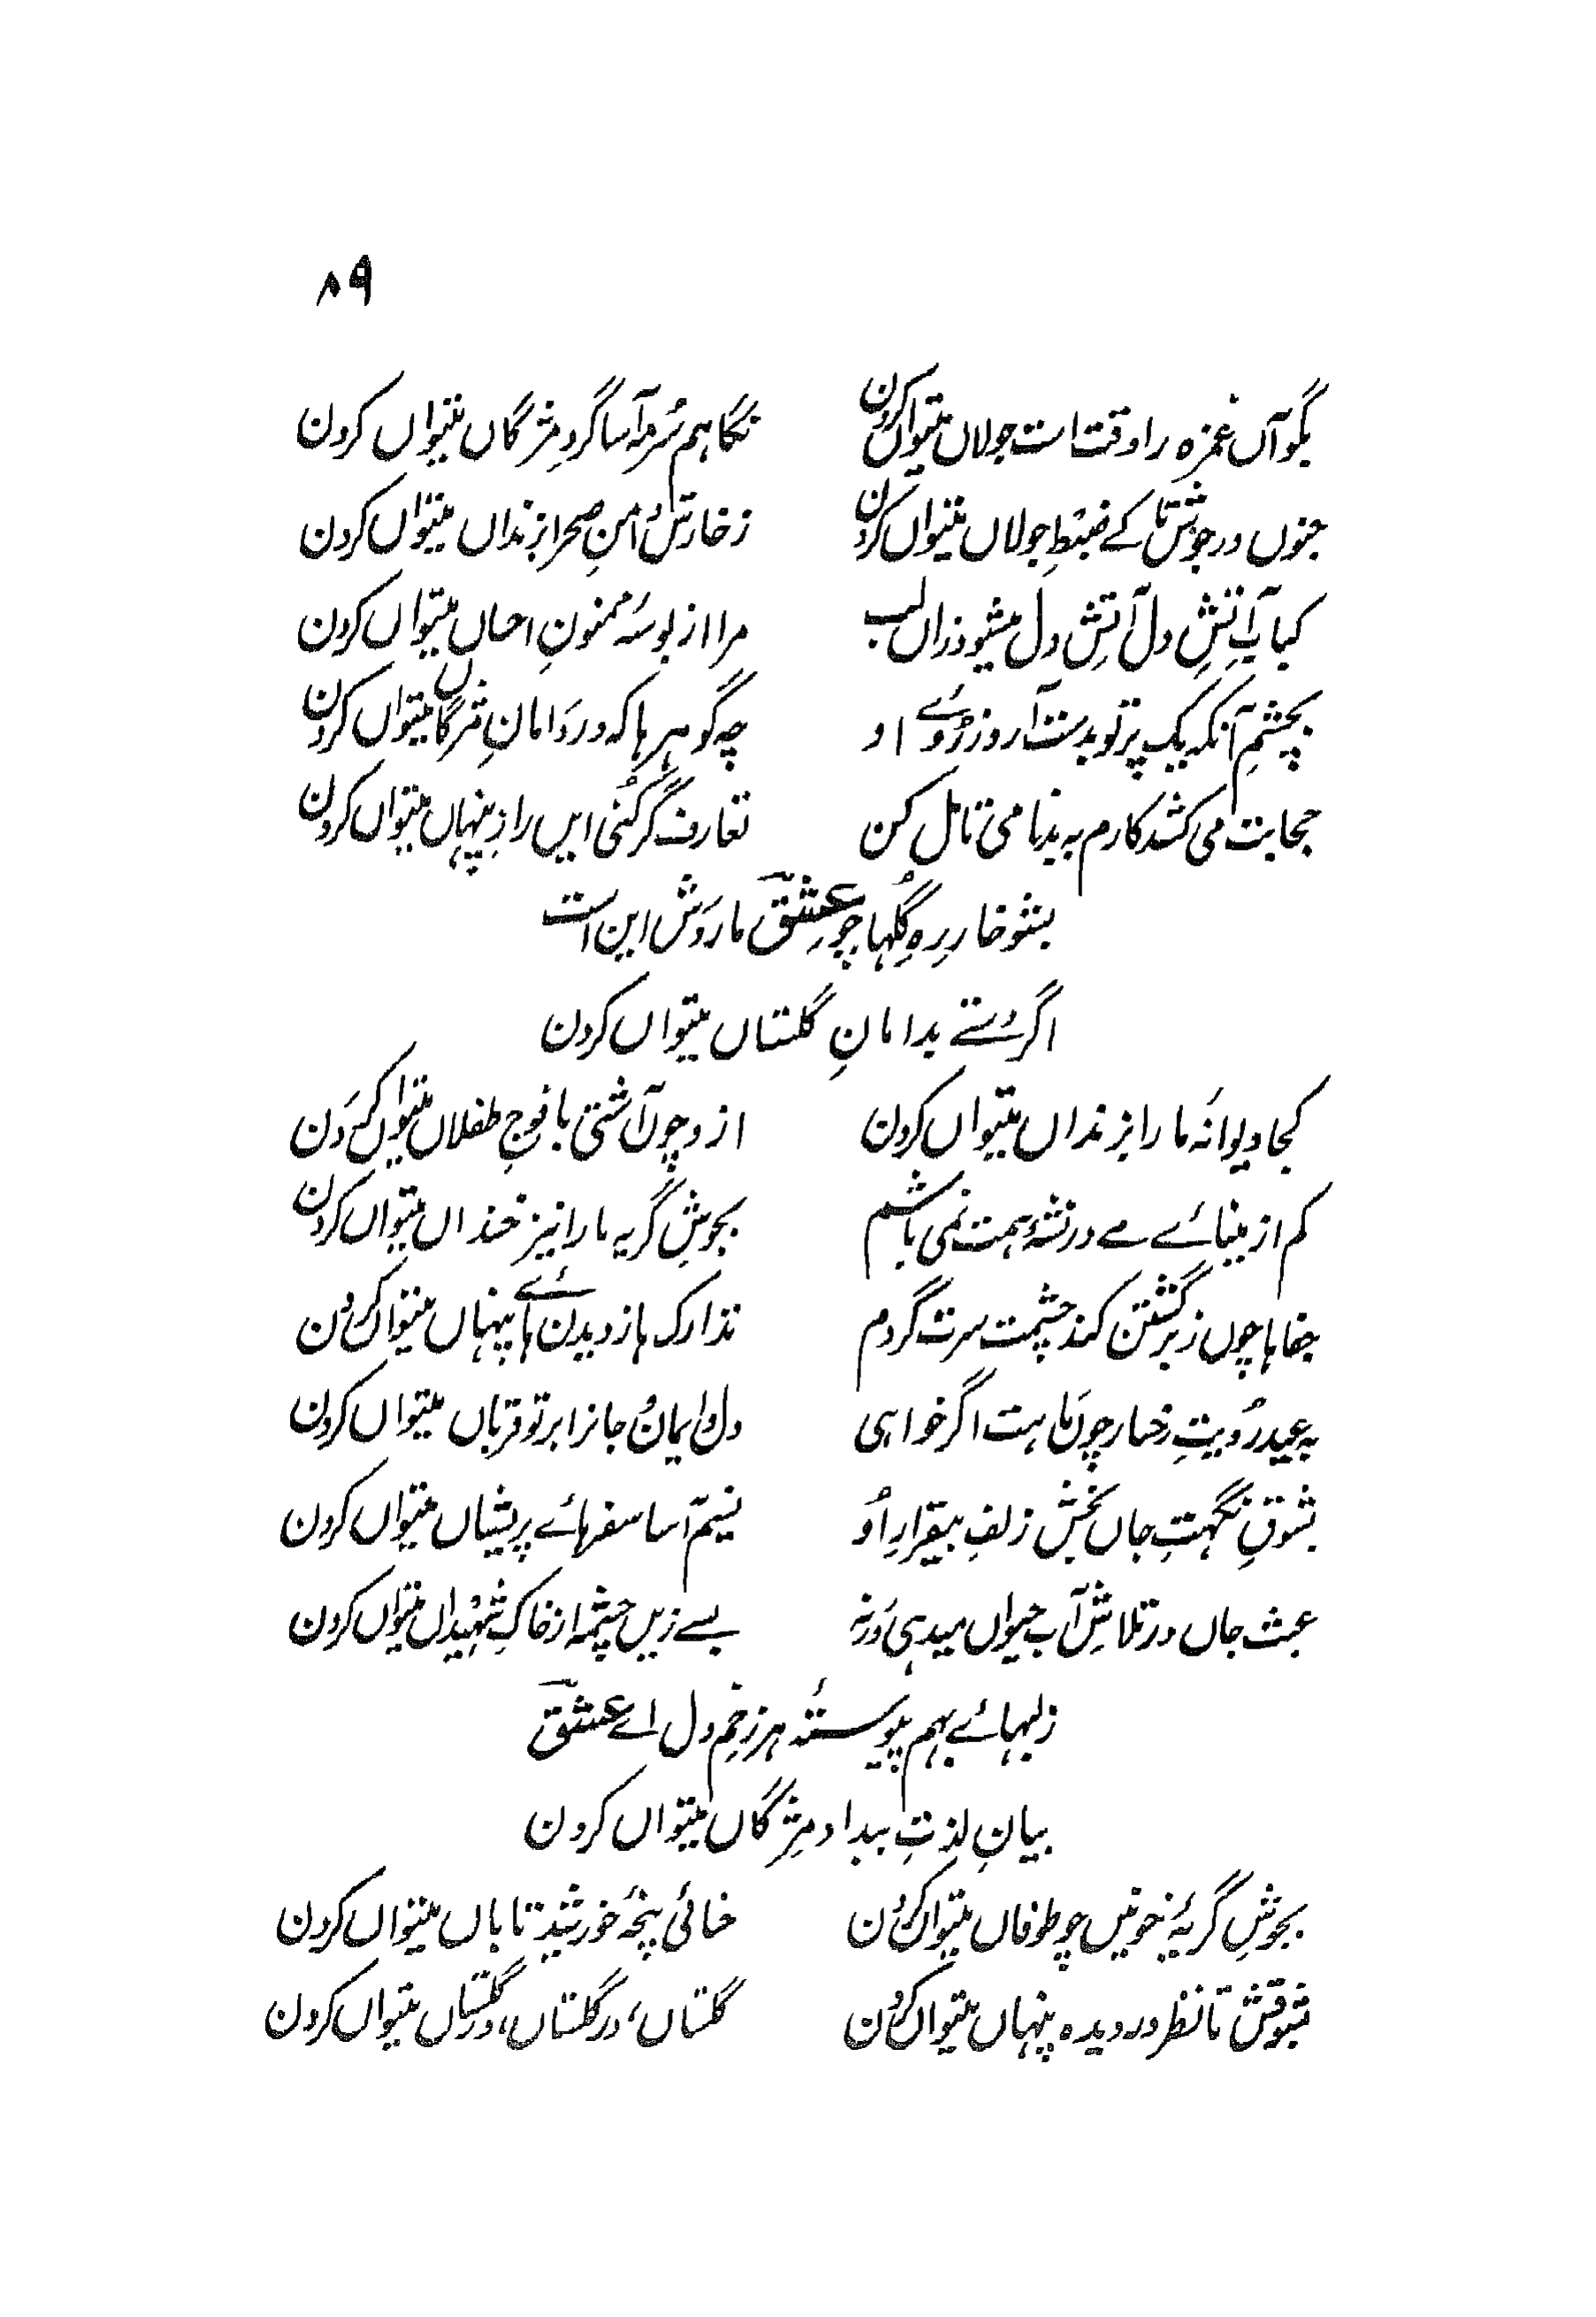 ۸۹
بگو آں غمزہ را وقت است جولاں میتواں کردن نگاہم سُرمہ آسا گردِ مژگاں میتواں کردن
جنوں در جوشش تا کے ضبطِ جولاں میتواں کردن ز خارش امنِ صحرا بزنداں میتواں کردن
کبابِ آتشِ دل آتشِ دل میشود زاں لب مرا از بوسۂ ممنونِ احساں میتواں کردن
بچشمِ آنکہ یک پرتو بدست آرد ز رُوئے او چہ گوہر ہا کہ در دَامانِ مژگاں میتواں کردن
حجابت می کشد کارم بہ بدنامی تامل کن تعارف گر کنُی ایں رازِ پنہاں میتواں کردن
بشو خارِ رہِ گُلہا چو عشقؔ ما رَوَش این است
اگر دستے بدامانِ گلستاں میتواں کردن
کجا دیوانۂ ما را بزنداں میتواں کردن ازو چوں آشتی با فوجِ طفلاں میتواں کردَن
کم از مینائے مے در نشۂ ہمت نمی باشم بجوشِ گریہ ما را نیز خنداں میتواں کردن
جفاہا چوں ز برگشتن کند چشمت سرت گردم تدارک ہا ز دیدن ہائے پنہاں میتواں کردن
بہ عیدِ رُویتِ رخسار چوں مَاہت اگر خواہی دل و ایمان و جانرا بر تو قرباں میتواں کردن
بشوقِ نگہتِ جاں بخش زلفِ بیقرارِ اُو نسیم آسا سفرہائے پریشاں میتواں کردن
عبث جاں در تلاشِ آبِ حیواں میدہی وَرنہ بسے زیں چشمہ از خاکِ شہیْداں میتواں کردن
ز لبہائے بہم پیوستۂ ہر زخمِ دل اے عشقؔ
بیانِ لذتِ بیداد مِژگاں میتواں کردن
بجوشِ گریۂ خونیں چو طوفاں میتواں کردن حنائی پنجۂ خورشیدِ تاباں میتواں کردن
بشوقش تا نظر در دیدہ پنہاں میتواں کردن گلستاں، در گلستاں، در گلستاں میتواں کردن